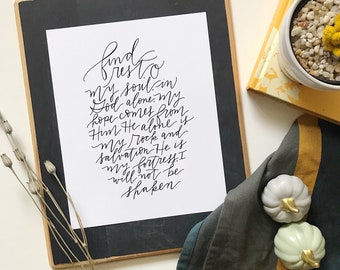 find
rest, O
my soul, in
God alone; my
hope comes from
Him. He alone is
my rock and
salvation. He is
my fortress, I
will not be
shaken.